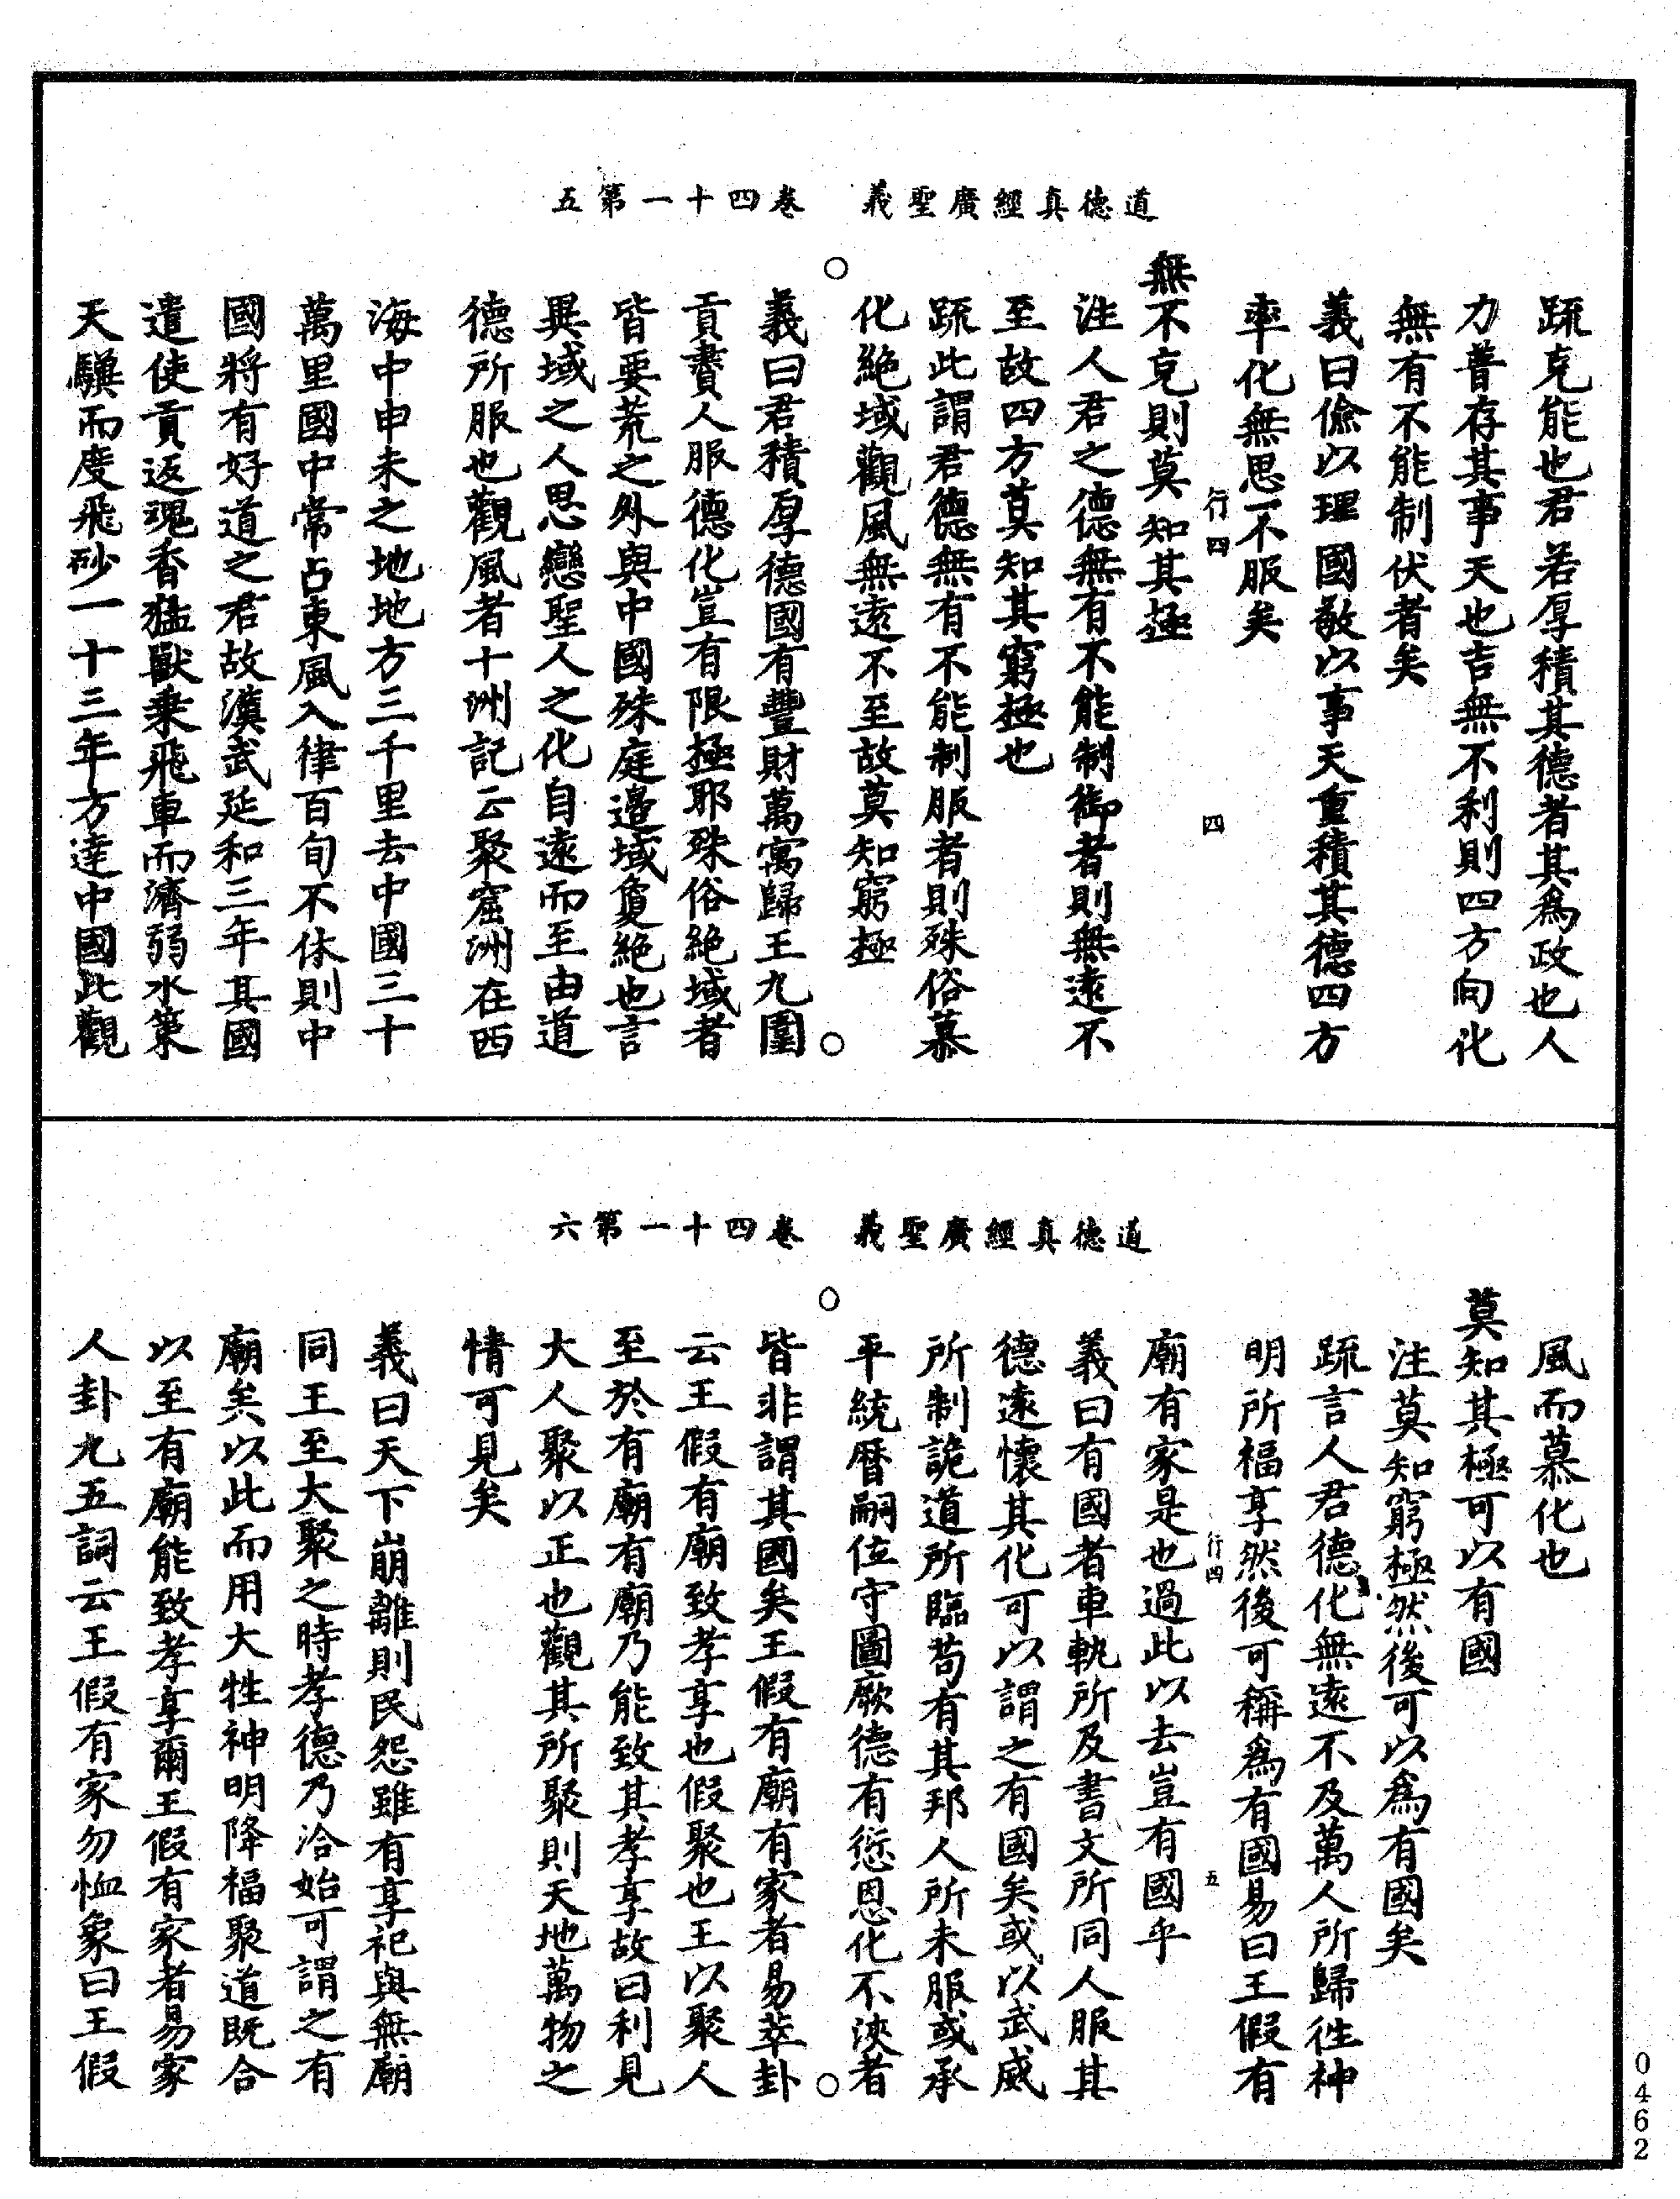 道德真經廣聖義　卷四十一第五
疏克能也君若厚積其德者其為政也人
力普存其事天也吉無不利則四方向化
無有不能制伏者矣
義曰儉以理國敬以事天重積其德四方
率化無思不服矣
行四　四
無不克則莫知其極
注人君之德無有不能制御者則無遠不
至故四方莫知其窮極也
疏此謂君德無有不能制服者則殊俗慕
化絕域觀風無遠不至故莫知窮極
義曰君積厚德國有豐財萬㝢歸王九圍
貢賮人服德化豈有限極耶殊俗絕域者
皆要荒之外與中國殊庭邉域夐絕也言
異域之人思戀聖人之化自遠而至由道
德所服也觀風者十洲記云聚窟洲在西
海中申未之地地方三千里去中國三十
萬里國中常占東風入律百旬不休則中
國將有好道之君故漢武延和三年其國
遣使貢返魂香猛獸乗飛車而濟弱水策
天驥而度飛砂一十三年方達中國此觀
道德真經廣聖義　卷四十一第六
風而慕化也
莫知其極可以有國
注莫知窮極然後可以為有國矣
疏言人君德化無遠不及萬人所歸往神
明所福享然後可稱為有國易曰王假有
行四　五
廟有家是也過此以去豈有國乎
義曰有國者車軌所及書文所同人服其
德遠懷其化可以謂之有國矣或以武威
所制詭道所臨苟有其邦人所未服或承
平統曆嗣位守圖厥德有愆恩化不浹者
皆非謂其國矣王假有廟有家者易萃卦
云王假有廟致孝享也假聚也王以聚人
至於有廟有廟乃能致其孝享故曰利見
大人聚以正也觀其所聚則天地萬物之
情可見矣
義曰天下崩離則民怨雖有享祀與無廟
同王至大聚之時孝德乃洽始可謂之有
廟矣以此而用大牲神明降福聚道既合
以至有廟能致孝享爾王假有家者易家
人卦九五詞云王假有家勿恤象曰王假
0462